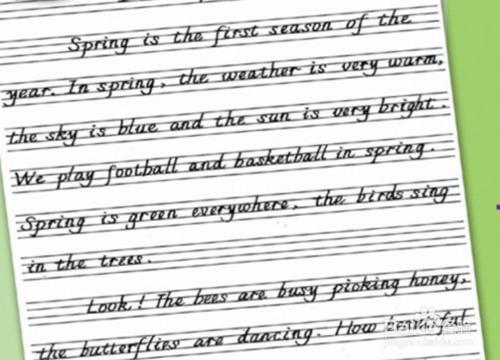 Spring is the first season of the
year. In spring, the weather is very warm,
the sky is blue and the sun is very bright.
We play football and basketball in spring.
Spring is green everywhere, the birds sing
in the trees.
Look! The bees are busy picking honey,
the butterflies are dancing. How beautiful